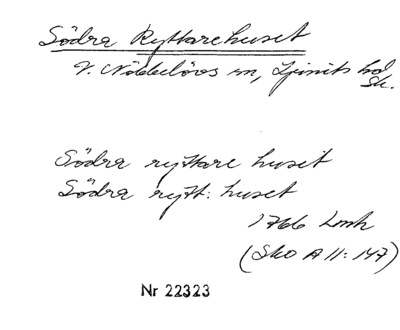 Södra Ryttarehuset
V. Nöbbelövs sn, Ljunits hd
Sk.
Södra ryttare huset
Södra rytt: huset
1766 Lmh
(Sko A 11: 147)
Nr 22323